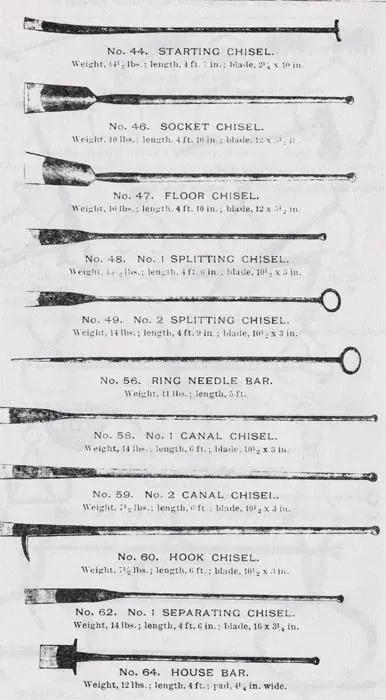 No. 44. STARTING CHISEL.
Weight, 14½ lbs.; length, 4 ft. 7 in.; blade, 2¼ x 10 in.
No. 46. SOCKET CHISEL.
Weight, 10 lbs.; length, 4 ft. 10 in.; blade, 12 x 5½ in.
No. 47. FLOOR CHISEL.
Weight, 10 lbs.; length, 4 ft. 10 in.; blade, 12 x 5½ in.
No. 48. No. 1 SPLITTING CHISEL.
Weight, lbs.; length, 4 ft. 6 in.; blade, 10½ x 3 in.
No. 49. No. 2 SPLITTING CHISEL.
Weight, 14 lbs.; length, 4 ft. 9 in.; blade, 10½ x 3 in.
No. 56. RING NEEDLE BAR.
Weight, 11 lbs.; length, 5 ft.
No. 58. No. 1 CANAL CHISEL.
Weight, 14 lbs.; length, 6 ft.; blade, 10½ x 3 in.
No. 59. No. 2 CANAL CHISEL.
Weight, 7½ lbs.; length, 6 ft.; blade, 10½ x 3 in.
No. 60. HOOK CHISEL.
Weight, 7½ lbs.; length, 6 ft.; blade, 10½ x 3 in.
No. 62. No. 1 SEPARATING CHISEL.
Weight, 14 lbs.; length, 4 ft. 6 in.; blade, 16 x 3¼ in.
No. 64. HOUSE BAR.
Weight, 12 lbs.; length, 4 ft.; pad, 4¼ in. wide.